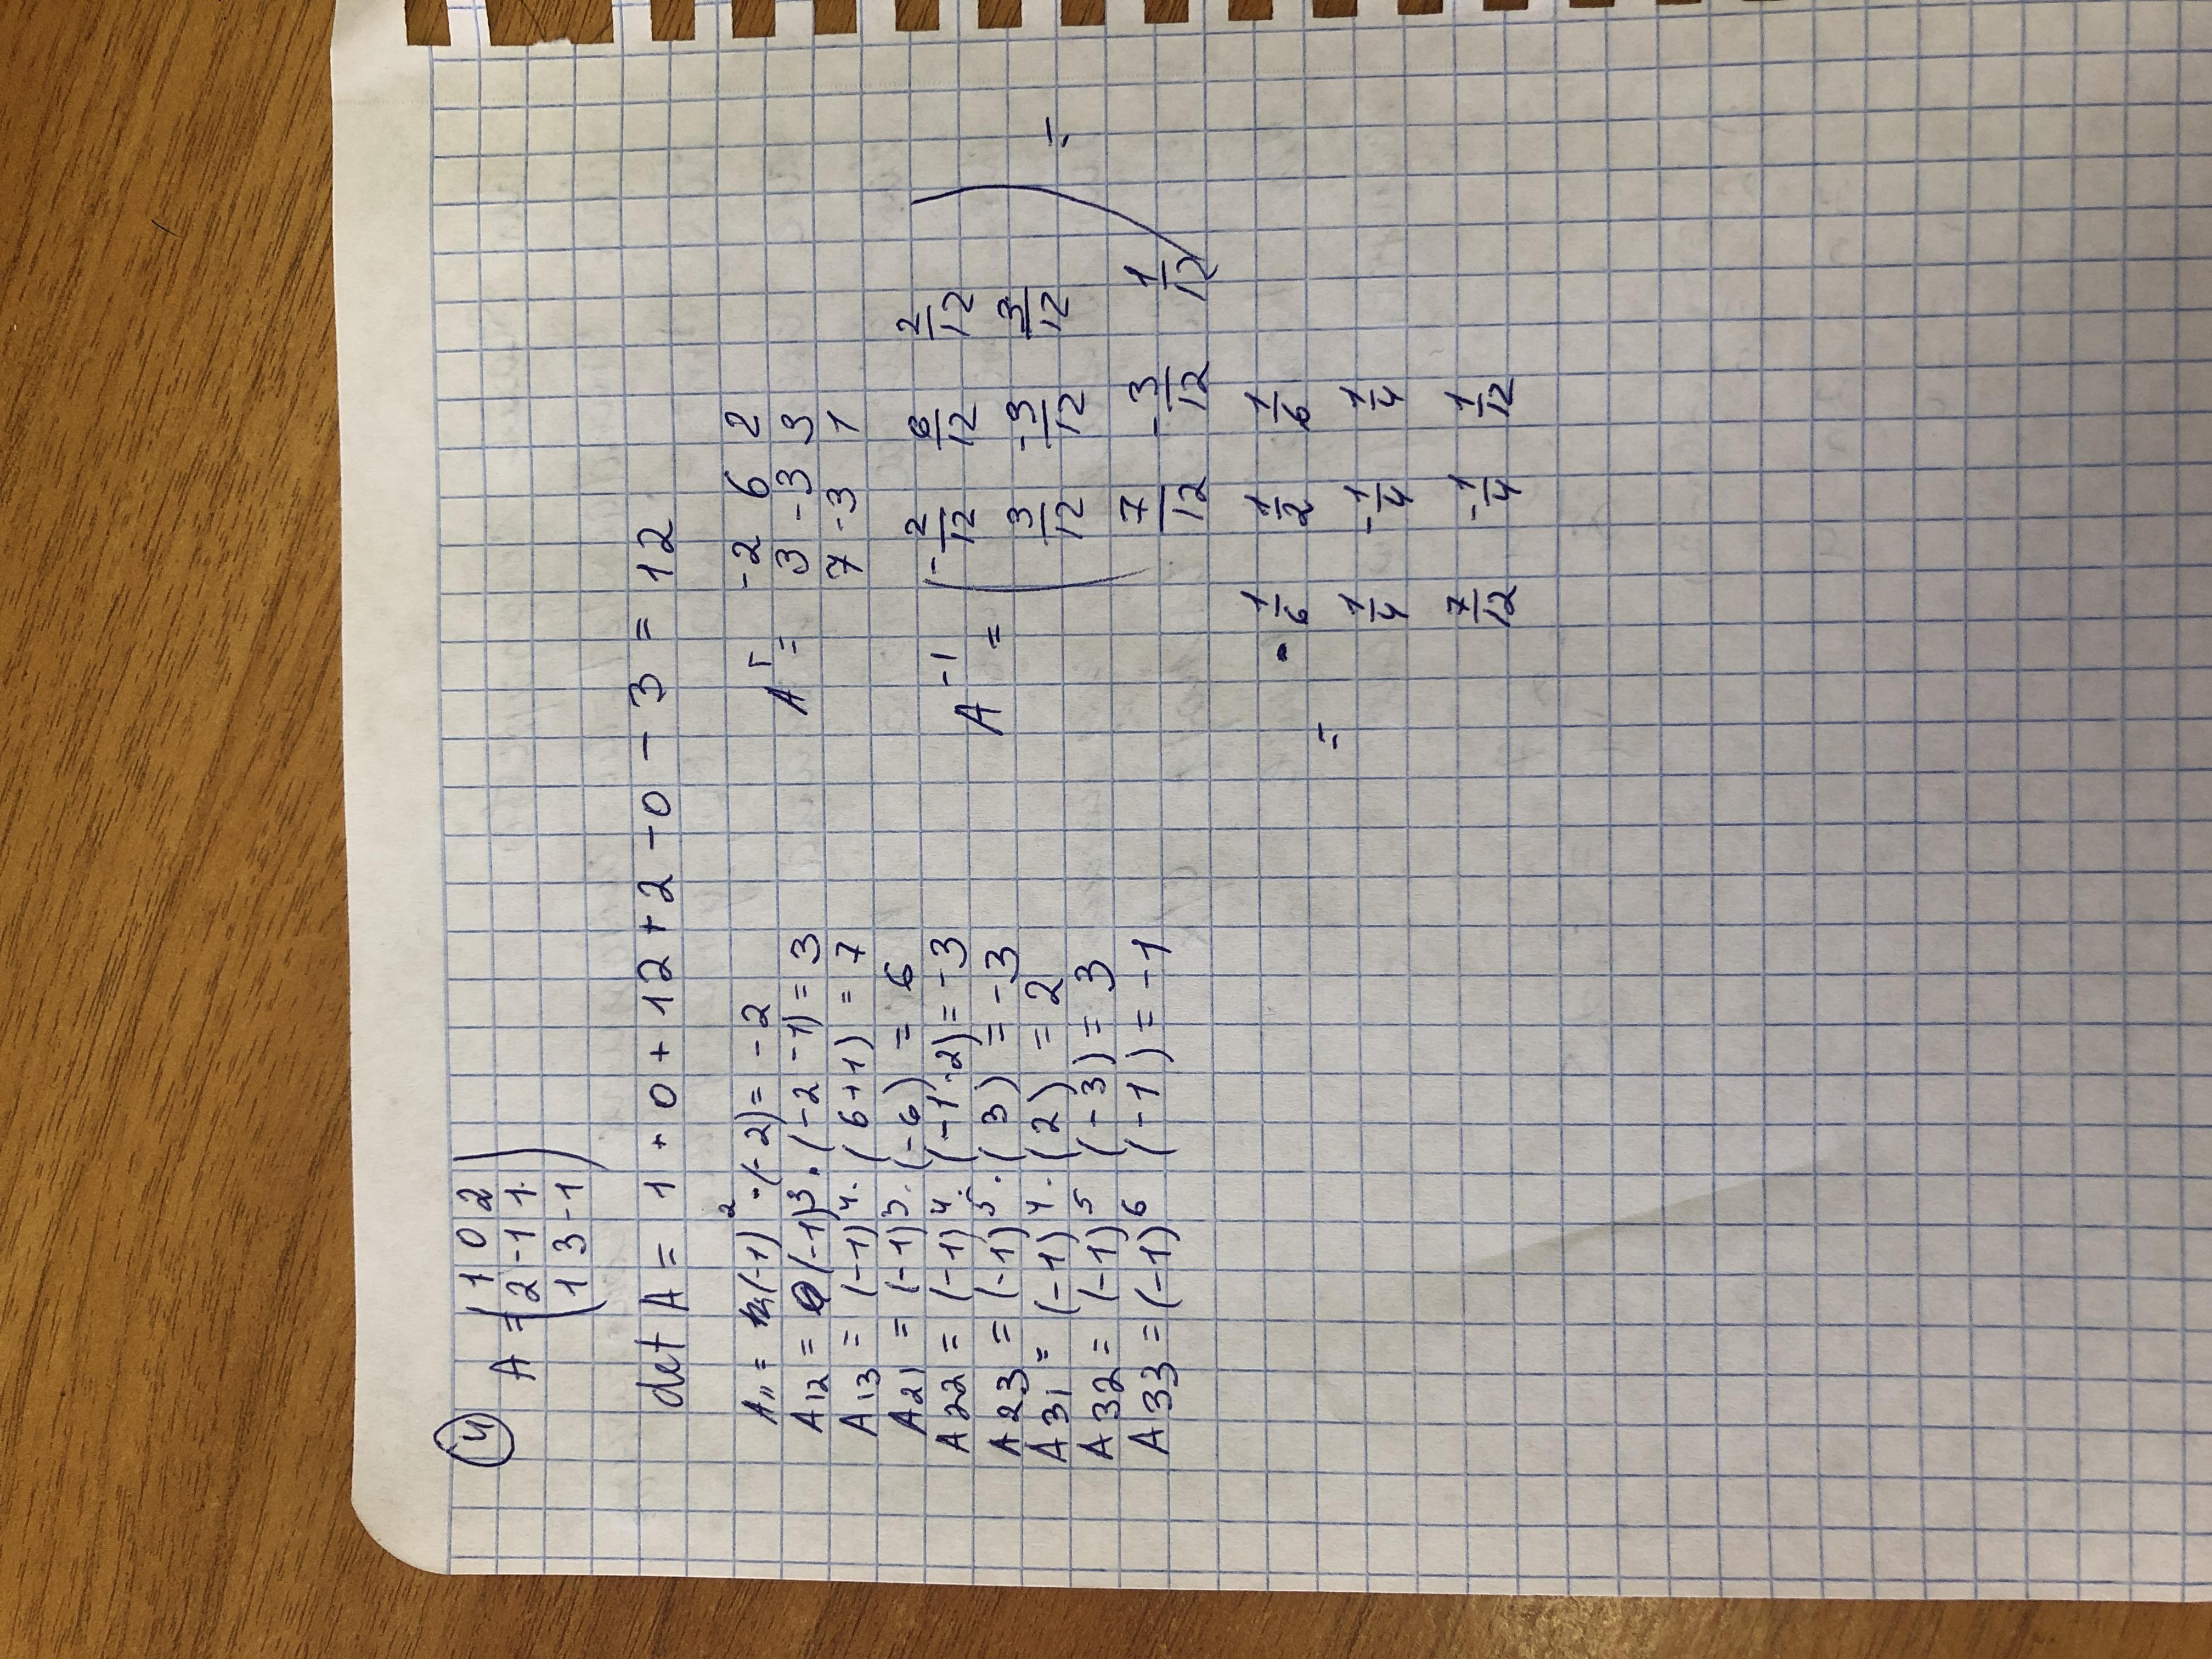 4
A = ( 1 0 2
2 -1 1
1 3 -1 )
det A = 1 + 0 + 12 + 2 - 0 - 3 = 12
A11 = (-1)² · (-2) = -2
A12 = (-1)³ · (-2 -1) = 3
A13 = (-1)⁴ · (6+1) = 7
A21 = (-1)³ · (-6) = 6
A22 = (-1)⁴ · (-1-2) = -3
A23 = (-1)⁵ · (3) = -3
A31 = (-1)⁴ · (2) = 2
A32 = (-1)⁵ (-3) = 3
A33 = (-1)⁶ (-1) = -1
Aᵀ = -2 6 2
3 -3 3
7 -3 1
A⁻¹ = ( -2/12 6/12 2/12
3/12 -3/12 3/12
7/12 -3/12 1/12 ) =
= -1/6 1/2 1/6
1/4 -1/4 1/4
7/12 -1/4 1/12